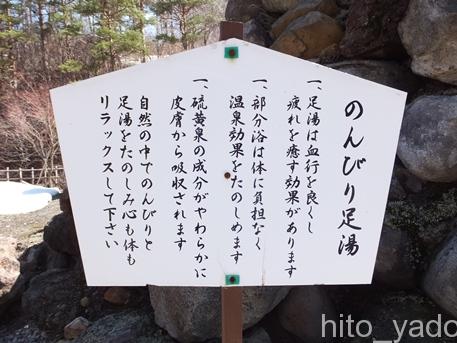 のんびり足湯
一、足湯は血行を良くし
疲れを癒す効果があります
一、部分浴は体に負担なく
温泉効果をたのしめます
一、硫黄泉の成分がやわらかに
皮膚から吸収されます
自然の中でのんびりと
足湯をたのしみ心も体も
リラックスして下さい
hito_yado